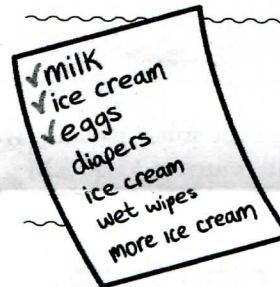 ✓milk
✓ice cream
✓eggs
diapers
ice cream
wet wipes
more ice cream